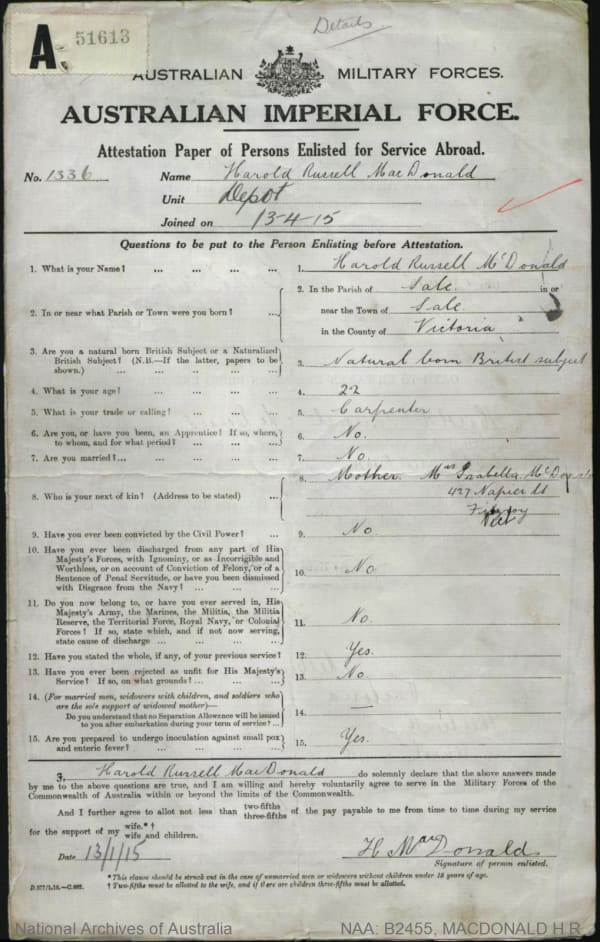 Details
A 51613
AUSTRALIAN MILITARY FORCES.
AUSTRALIAN IMPERIAL FORCE.
Attestation Paper of Persons Enlisted for Service Abroad.
No. 1336 Name Harold Russell MacDonald
Unit Depot
Joined on 13-4-15
Questions to be put to the Person Enlisting before Attestation.
1. What is your Name? ... ... ... ... 1. Harold Russell McDonald
2. In or near what Parish or Town were you born? ... 2. In the Parish of Sale in or
near the Town of Sale
in the County of Victoria
3. Are you a natural born British Subject or a Naturalized
British Subject? (N.B.—If the latter, papers to be
shown.) ... ... ... ... ... 3. Natural born British subject
4. What is your age? ... ... ... ... 4. 22
5. What is your trade or calling? ... ... ... 5. Carpenter
6. Are you, or have you been, an Apprentice? If so, where,
to whom, and for what period? ... ... ... 6. No.
7. Are you married?... ... ... ... ... 7. No.
8. Who is your next of kin? (Address to be stated) ... 8. Mother. Mrs Isabella
427 Napier St
Fitzroy
Vic
9. Have you ever been convicted by the Civil Power? ... 9. No
10. Have you ever been discharged from any part of His
Majesty's Forces, with Ignominy, or as Incorrigible and
Worthless, or on account of Conviction of Felony, or of a
Sentence of Penal Servitude, or have you been dismissed
with Disgrace from the Navy? ... ... ... 10. No
11. Do you now belong to, or have you ever served in, His
Majesty's Army, the Marines, the Militia, the Militia
Reserve, the Territorial Force, Royal Navy, or Colonial
Forces? If so, state which, and if not now serving,
state cause of discharge ... ... ... ... 11. No.
12. Have you stated the whole, if any, of your previous service? 12. Yes.
13. Have you ever been rejected as unfit for His Majesty's
Service? If so, on what grounds? ... ... ... 13. No
14. (For married men, widowers with children, and soldiers who
are the sole support of widowed mother)—
Do you understand that no Separation Allowance will be issued
to you after embarkation during your term of service? ... 14. —
15. Are you prepared to undergo inoculation against small pox
and enteric fever? ... ... ... ... 15. Yes.
I, Harold Russell MacDonald do solemnly declare that the above answers made
by me to the above questions are true, and I am willing and hereby voluntarily agree to serve in the Military Forces of the
Commonwealth of Australia within or beyond the limits of the Commonwealth.
And I further agree to allot not less than two-fifths three-fifths of the pay payable to me from time to time during my service
for the support of my wife.*† wife and children.
Date 13/1/15 H MacDonald
Signature of person enlisted.
*This clause should be struck out in the case of unmarried men or widowers without children under 18 years of age.
† Two-fifths must be allotted to the wife, and if there are children three-fifths must be allotted.
National Archives of Australia NAA: B2455, MACDONALD H R